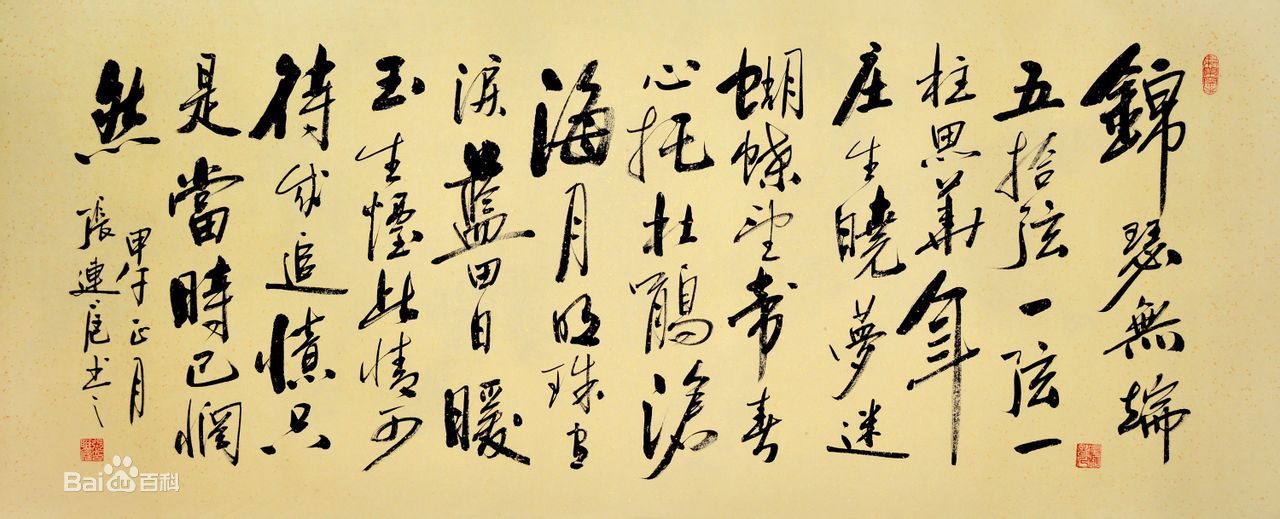 錦瑟無端
五拾弦一弦一
柱思華年
庄生曉夢迷
蝴蝶望帝春
心托杜鵑滄
海月明珠有
淚藍田日暖
玉生煙此情可
待成追憶只
是當時已惘
然
甲午正月
張連书之
Bai百科